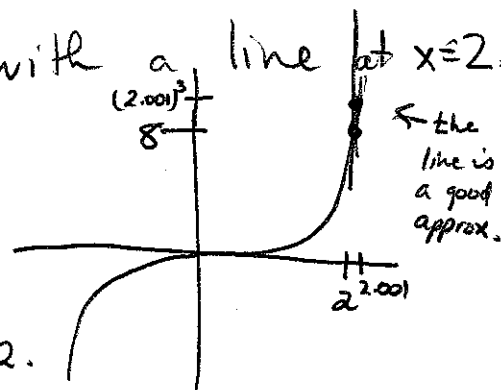 with a line at x=2.
(2.001)³
8
← the
line is
a good
approx.
2 2.001
2.